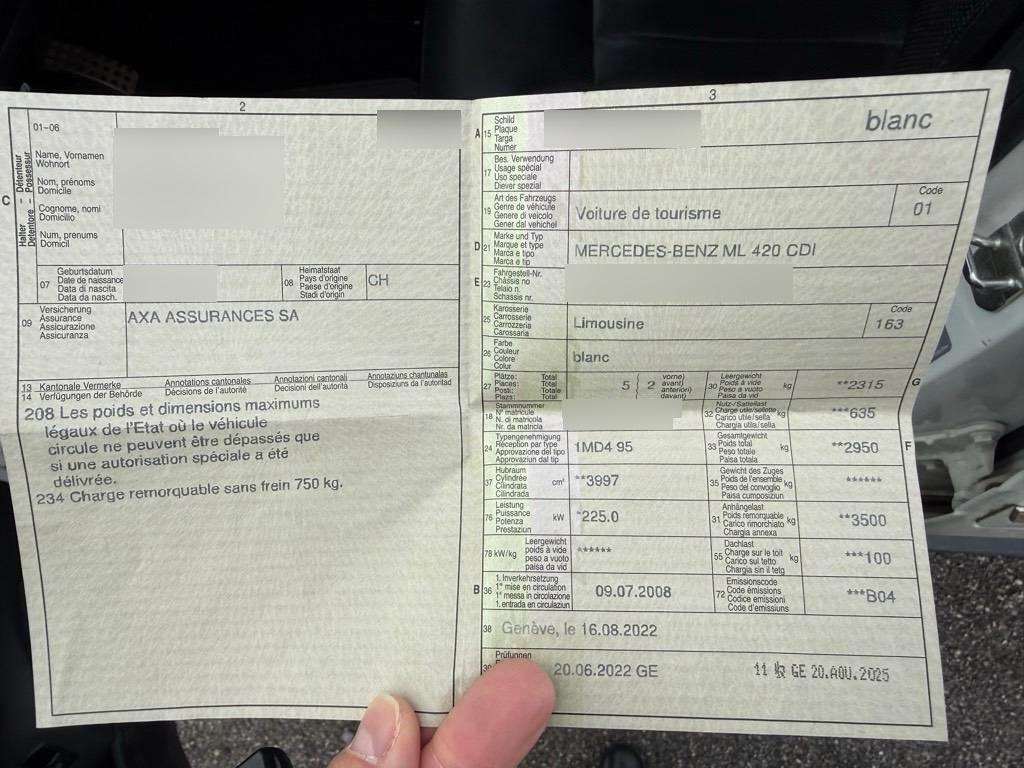 2
01-06
Halter – Détenteur
Detentore – Possessur
C
Name, Vornamen
Wohnort
Nom, prénoms
Domicile
Cognome, nomi
Domicilio
Num, prenums
Domicil
07
Geburtsdatum
Date de naissance
Data di nascita
Data da nasch.
08
Heimatstaat
Pays d'origine
Paese d'origine
Stadi d'origin
CH
09
Versicherung
Assurance
Assicurazione
Assicuranza
AXA ASSURANCES SA
13 Kantonale Vermerke Annotations cantonales Annotazioni cantonali Annotaziuns chantunalas
14 Verfügungen der Behörde Décisions de l'autorité Decisioni dell'autorità Disposiziuns da l'autoritad
208 Les poids et dimensions maximums
légaux de l'Etat où le véhicule
circule ne peuvent être dépassés que
si une autorisation spéciale a été
délivrée.
234 Charge remorquable sans frein 750 kg.
3
A 15
Schild
Plaque
Targa
Numer
blanc
17
Bes. Verwendung
Usage spécial
Uso speciale
Diever spezial
19
Art des Fahrzeugs
Genre de véhicule
Genere di veicolo
Gener dal vehichel
Voiture de tourisme
Code
01
D 21
Marke und Typ
Marque et type
Marca e tipo
Marca e tip
MERCEDES-BENZ ML 420 CDI
E 23
Fahrgestell-Nr.
Châssis no
Telaio n.
Schassis nr.
25
Karosserie
Carrosserie
Carrozzeria
Carossaria
Limousine
Code
163
26
Farbe
Couleur
Colore
Colur
blanc
27
Plätze: Total
Places: Total
Posti: Totale
Plazs: Total
5 ( 2
vorne)
avant)
anteriori)
davant)
30
Leergewicht
Poids à vide
Peso a vuoto
Paisa da vid
kg
**2315
G
18
Stammnummer
N° matricule
N. di matricola
Nr. da matricla
32
Nutz-/Sattellast
Charge utile/sellette
Carico utile/sella
Chargia utila/sella
kg
***635
24
Typengenehmigung
Réception par type
Approvazione del tipo
Approvaziun dal tip
1MD4 95
33
Gesamtgewicht
Poids total
Peso totale
Paisa totala
kg
**2950
F
37
Hubraum
Cylindrée
Cilindrata
Cilindrada
cm³
**3997
35
Gewicht des Zuges
Poids de l'ensemble
Peso del convoglio
Paisa cumposiziun
kg
******
76
Leistung
Puissance
Potenza
Prestaziun
kW
*225.0
31
Anhängelast
Poids remorquable
Carico rimorchiato
Chargia annexa
kg
**3500
78 kW/kg
Leergewicht
poids à vide
peso a vuoto
paisa da vid
******
55
Dachlast
Charge sur le toit
Carico sul tetto
Chargia sin il tetg
kg
***100
B 36
1. Inverkehrsetzung
1re mise en circulation
1a messa in circolazione
1. entrada en circulaziun
09.07.2008
72
Emissionscode
Code émissions
Codice emissioni
Code d'emissiuns
***B04
38
Genève, le 16.08.2022
39
Prüfungen
20.06.2022 GE
GE 20.AOU.2025